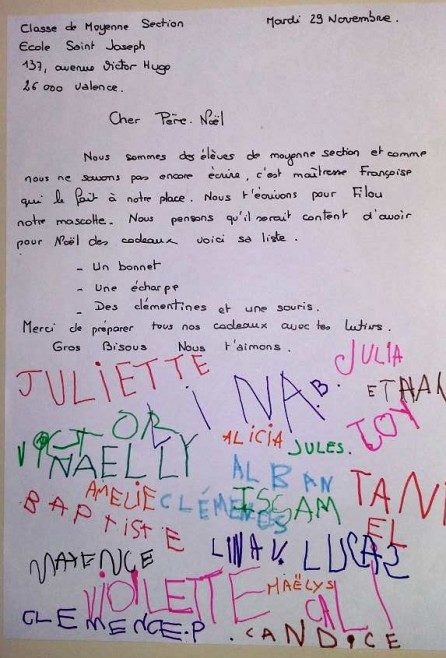 Classe de Moyenne Section Mardi 29 Novembre.
Ecole Saint Joseph
137, avenue Victor Hugo
26 000 Valence.
Cher Père Noël
Nous sommes des élèves de moyenne section et comme
nous ne savons pas encore écrire, c'est maîtresse Françoise
qui le fait à notre place. Nous t'écrivons pour Filou
notre mascotte. Nous pensons qu'il serait content d'avoir
pour Noël des cadeaux voici sa liste.
- Un bonnet
- Une écharpe
- Des clémentines et une souris.
Merci de préparer tous nos cadeaux avec tes lutins.
Gros Bisous Nous t'aimons.
JULIETTE LINA.B. JULIA
ETHAN
VICTOR ALICIA JULES. JOY
NAELLY ALBAN
AMELIE CLÉMENCE ISSAM TANI
BAPTISTE EL
MAXENCE LINA V. LUCAS
VIOLETTE MAËLYS CALI
CLEMENCE.P CANDICE